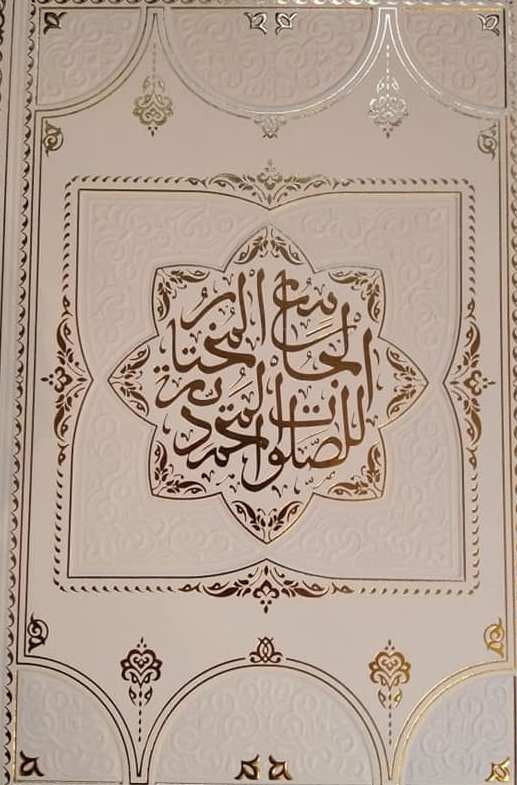 الجامع المختار
للصلوات المحمدية